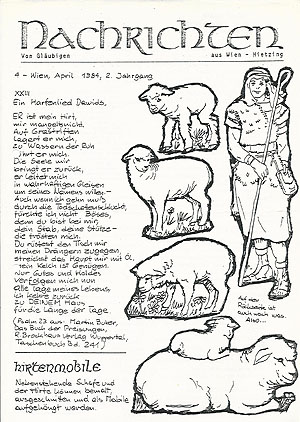 Nachrichten
Von Gläubigen aus Wien - Hietzing
4 - Wien, April 1984, 2. Jahrgang
XXIII
Ein Harfenlied Dawids,
ER ist mein Hirt,
mir mangelts nicht.
Auf Grastriften
lagert er mich,
zu Wassern der Ruh
führt er mich.
Die Seele mir
bringt er zurück,
er leitet mich
in wahrhaftigen Gleisen
um seines Namens willen -
Auch wenn ich gehn muß
durch die Todschattenschlucht,
fürchte ich nicht Böses,
denn du bist bei mir,
dein Stab, deine Stütze -
die trösten mich.
Du rüstest den Tisch mir
meinen Drängern zugegen,
streichst das Haupt mir mit Öl,
mein Kelch ist Genügen.
Nur Gutes und Holdes
verfolgen mich nun
alle Tage meines Lebens,
ich kehre zurück
zu DEINEM Haus
für die Länge der Tage.
(Psalm 23 aus: Martin Buber,
Das Buch der Preisungen,
R. Brockhaus Verlag Wuppertal,
Taschenbuch Bd. 241)
Auf der
Rückseite ist
auch noch was.
Also...
HIRTENMOBILE
Nebenstehende Schafe und
der Hirte können bemalt,
ausgeschnitten und als Mobile
aufgehängt werden.